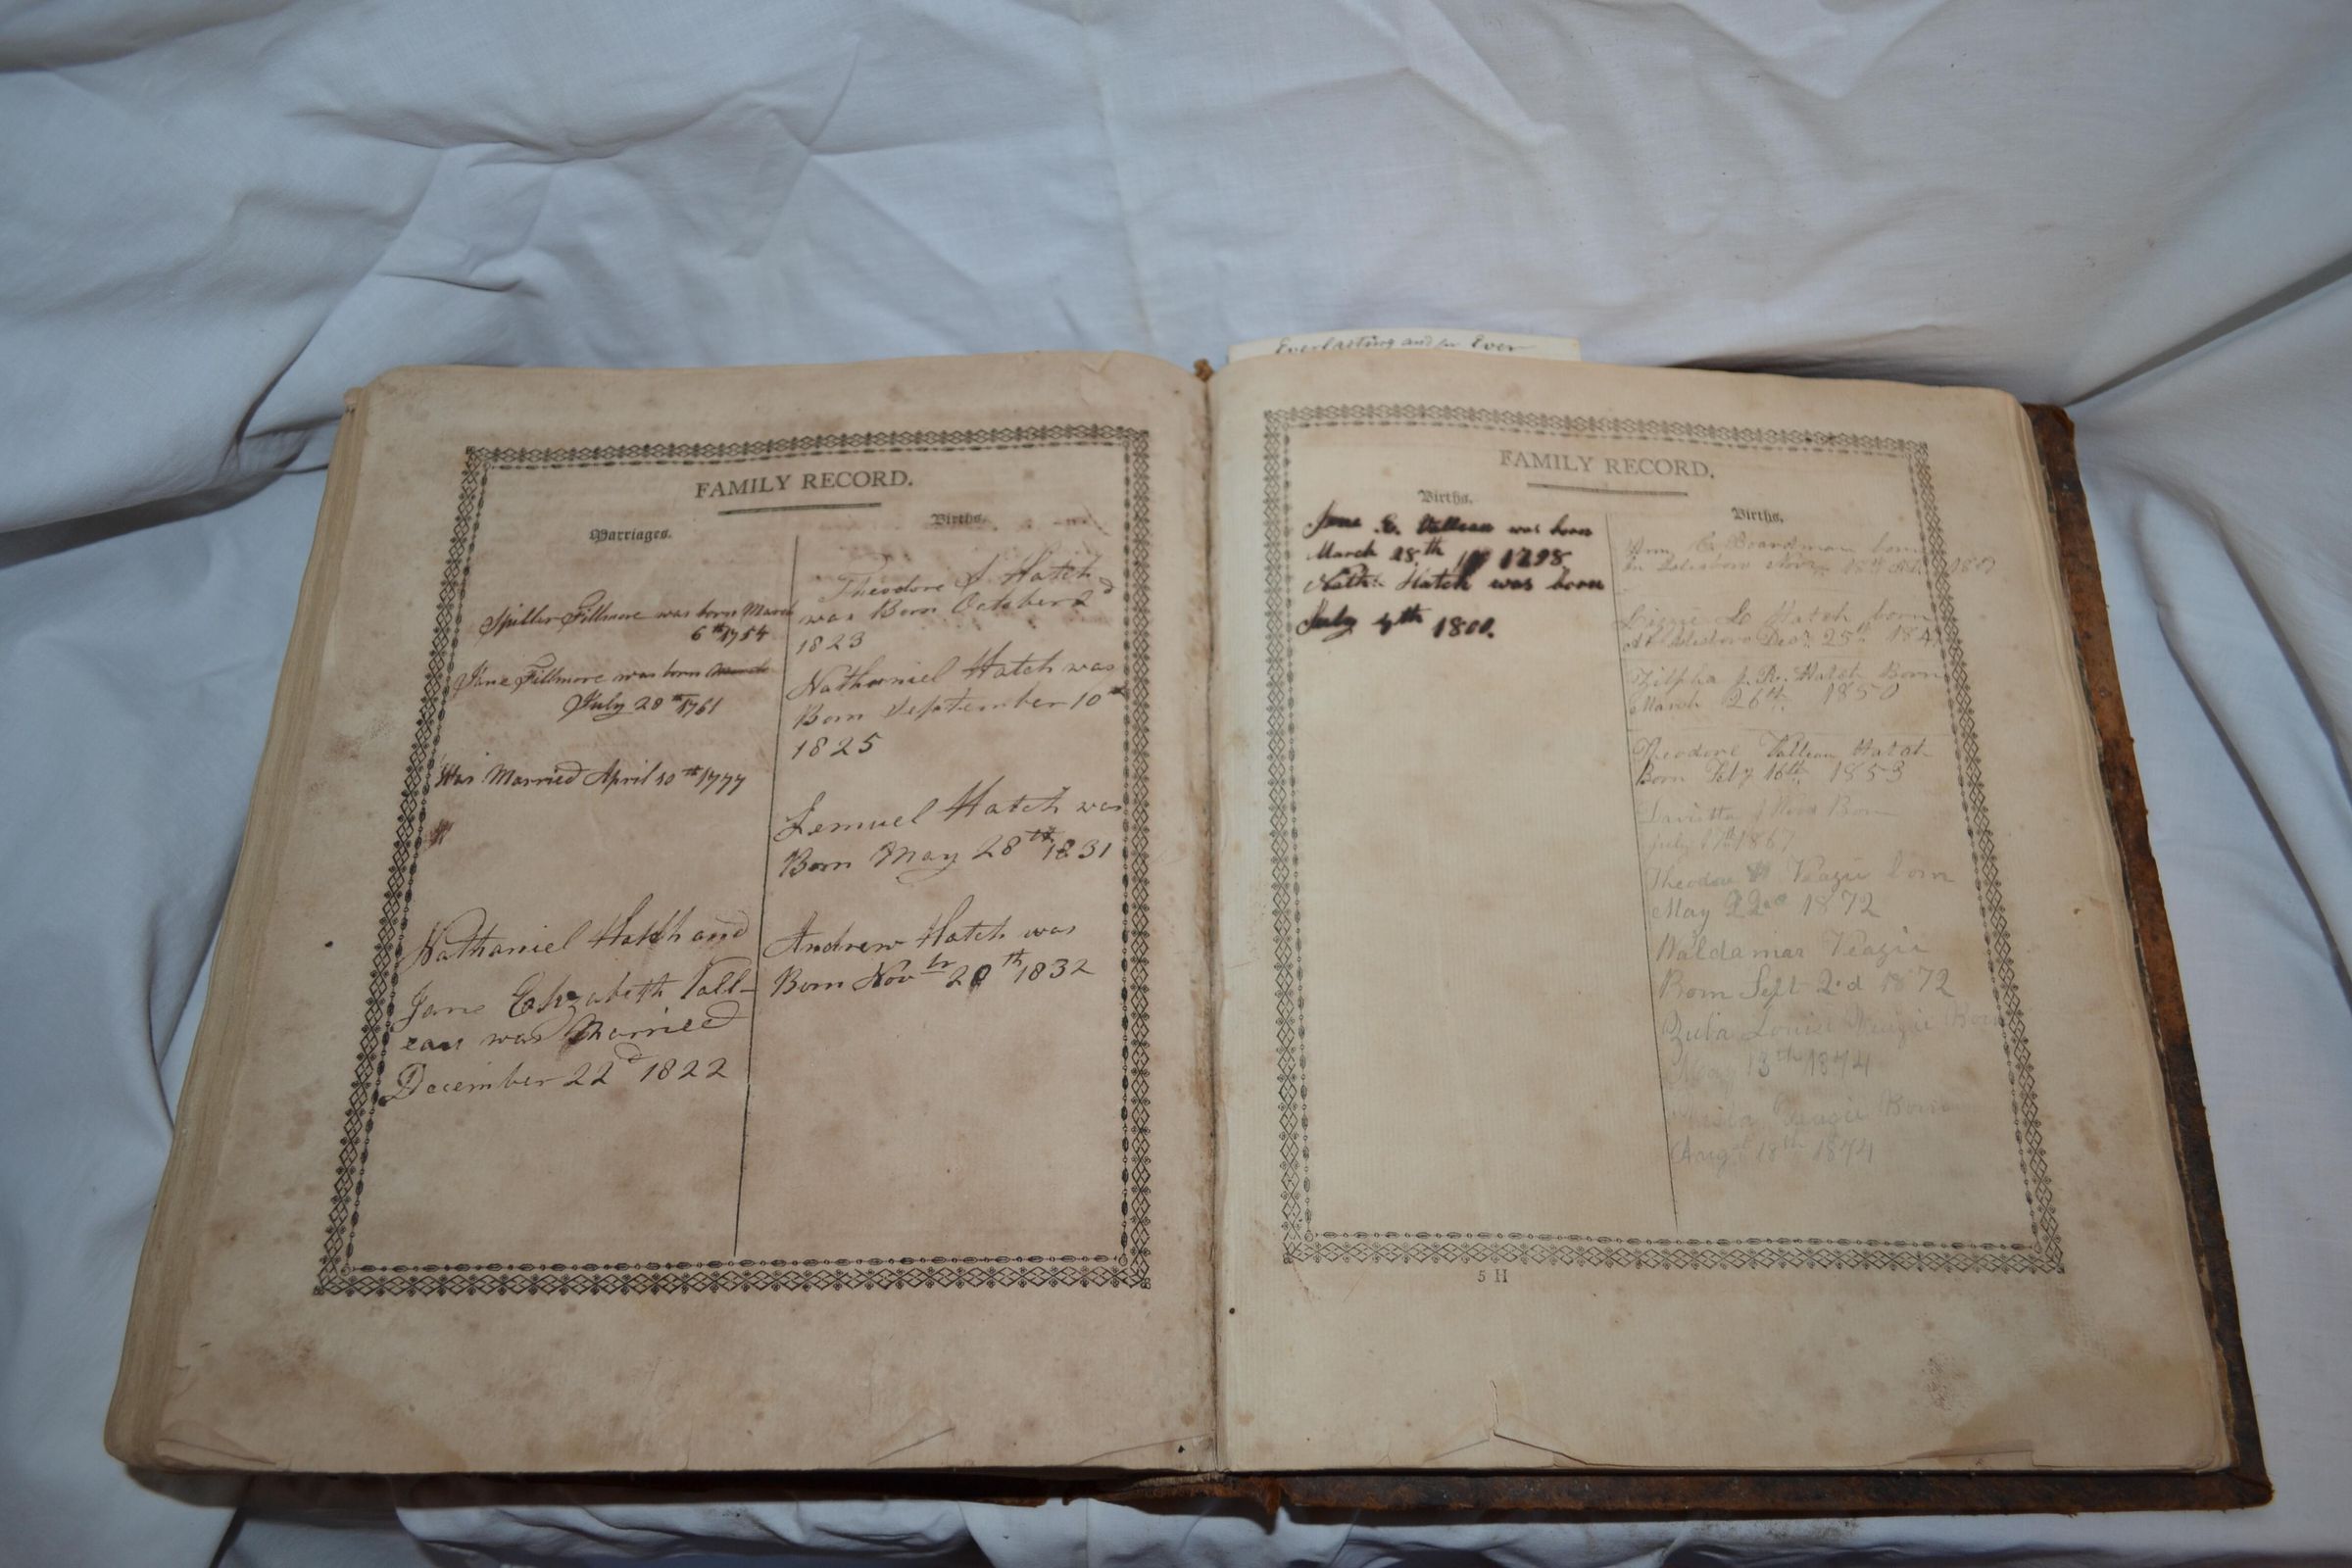 Everlasting and for Ever
FAMILY RECORD.
Marriages.
Spiller Fillmore was born March
6th 1754
Jane Fillmore was born
July 28th 1761
Was Married April 10th 1777
Nathaniel Hatch and
Jane Elizabeth Vall-
eau was Married
December 22d 1822
Births.
Theodore S Hatch
was Born October 2d
1823
Nathaniel Hatch was
Born September 10th
1825
Lemuel Hatch was
Born May 28th 1831
Andrew Hatch was
Born Novbr 20th 1832
FAMILY RECORD.
Births.
Jane E. Valleau was born
March 28th 1798
Nathl. Hatch was born
July 4th 1800.
Births.
Boardman born
Hatch born
25th
Zilpha J. R. Hatch Born
March 26th 1850
Theodore Valleau Hatch
Born Feby 16th 1853
Born
July 17th 1867
Theodore Veazie born
May 22 1872
Waldamar Veazie
Born Sept 2d 1872
Zulia Louise Veazie Born
May 13th 1874
Veazie Born
Augt 18th 1874
5 H